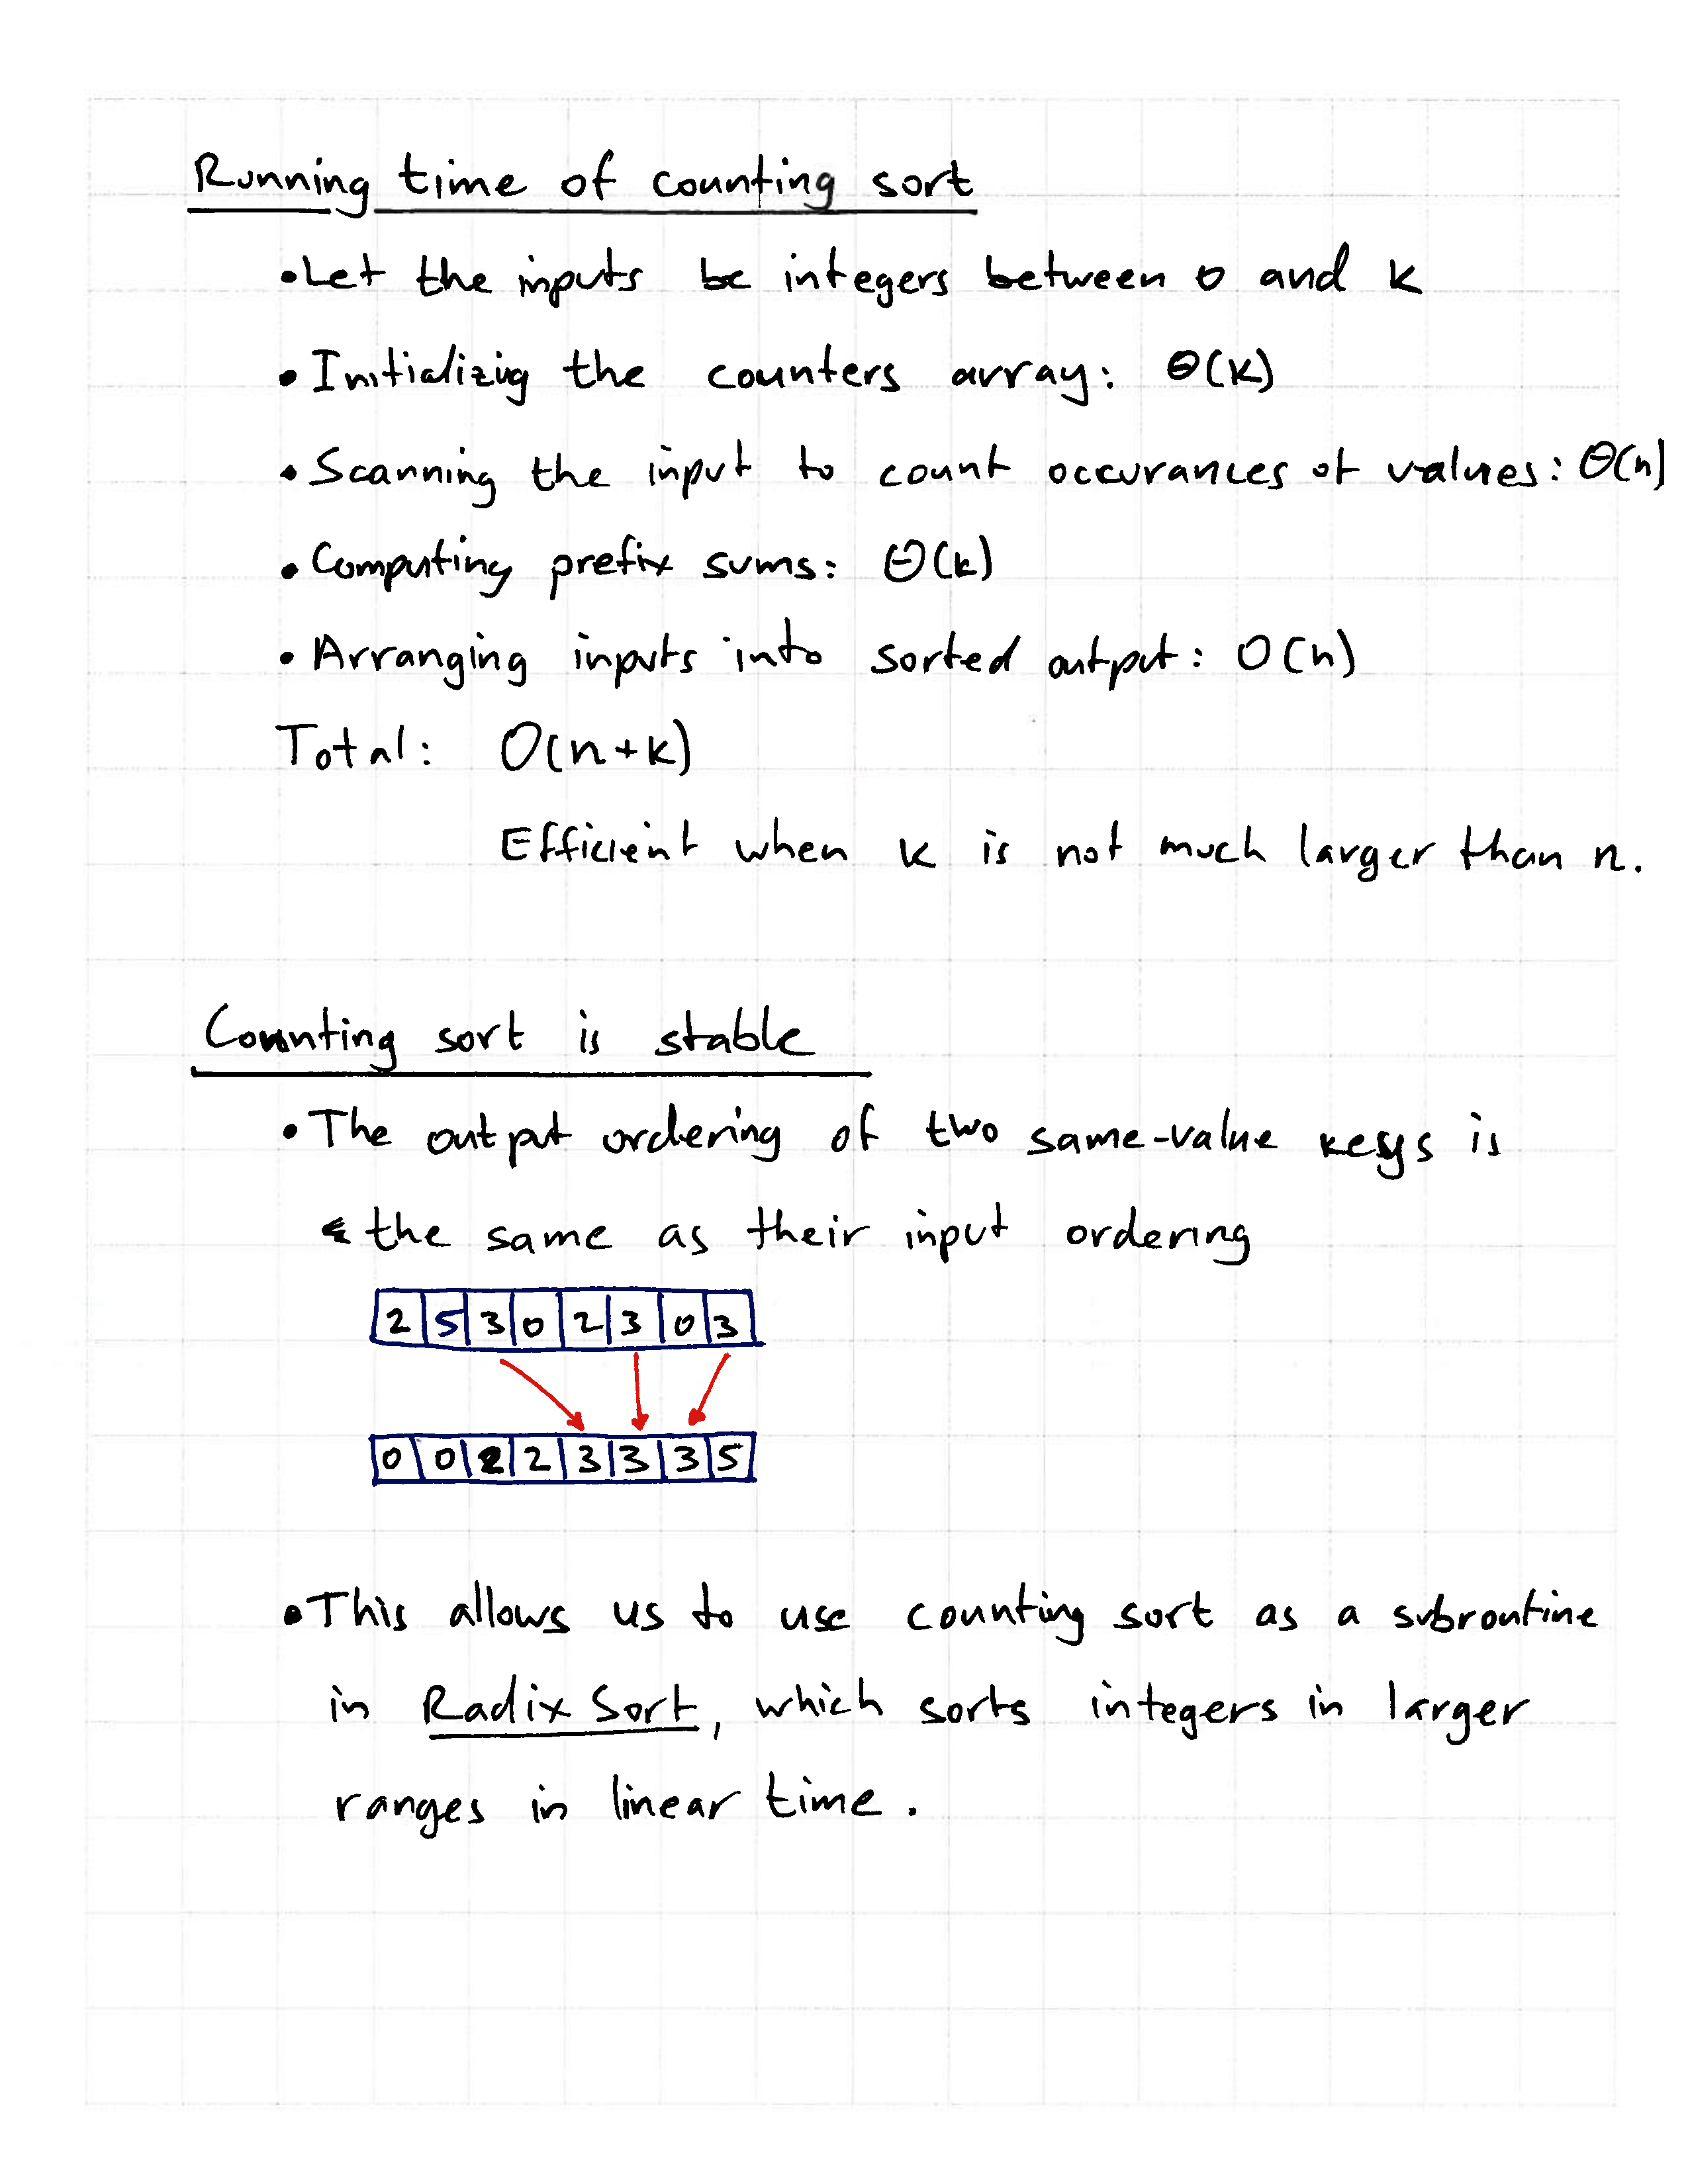 Running time of counting sort
• Let the inputs be integers between 0 and k
• Initializig the counters array: Θ(k)
• Scanning the input to count occurances of values: Θ(n)
• Computing prefix sums: Θ(k)
• Arranging inputs into sorted output: O(n)
Total: O(n+k)
Efficient when k is not much larger than n.
Counting sort is stable
• The output ordering of two same-value keys is
the same as their input ordering
2 5 3 0 2 3 0 3
0 0 2 2 3 3 3 5
• This allows us to use counting sort as a subroutine
in Radix Sort, which sorts integers in larger
ranges in linear time.